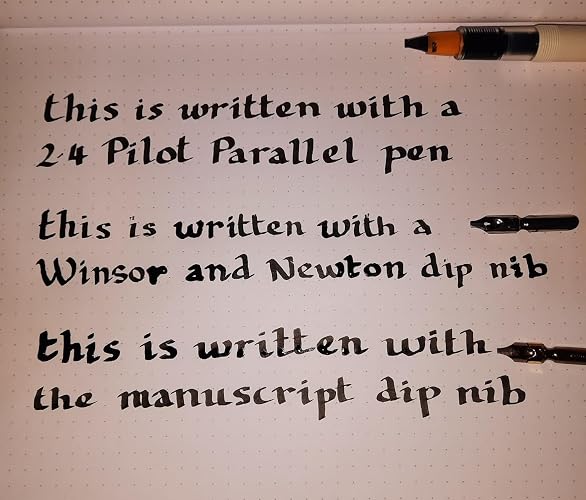 this is written with a
2.4 Pilot Parallel pen
this is written with a
Winsor and Newton dip nib
this is written with
the manuscript dip nib